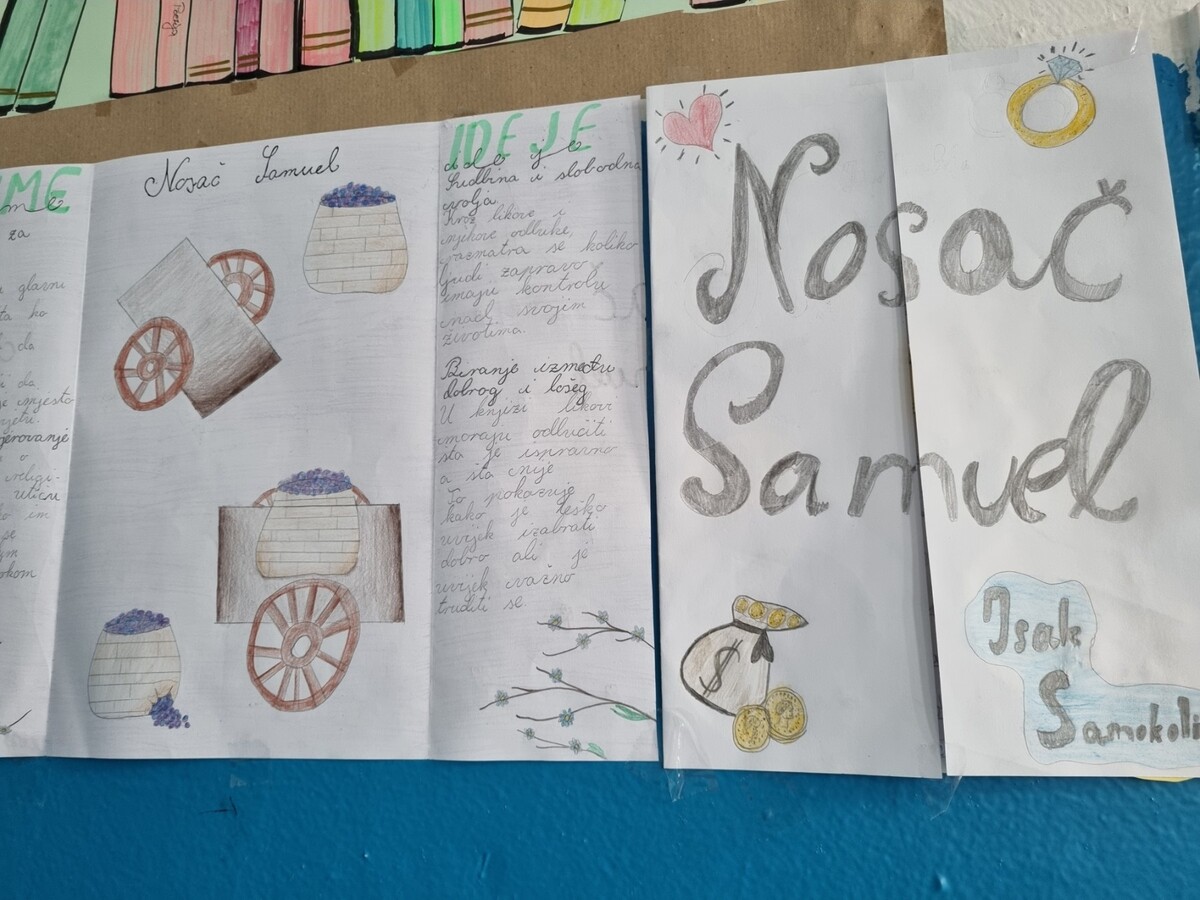 Nosač Samuel
IDEJE
ide je
Sudbina i slobodna
volja
Kroz likove i
njihove odluke,
razmatra se koliko
ljudi zapravo
imaju kontrolu
nad svojim
životima.
Biranje između
dobrog i lošeg
U knjizi likovi
moraju odlučiti
šta je ispravno
a šta nije
To pokazuje
kako je teško
uvijek izabrati
dobro ali je
uvijek važno
truditi se
Nosač
Samuel
Isak
Samokoli
$
za
glavni
ko
da
da
mjesto
jerovanje
o
religi-
im
se